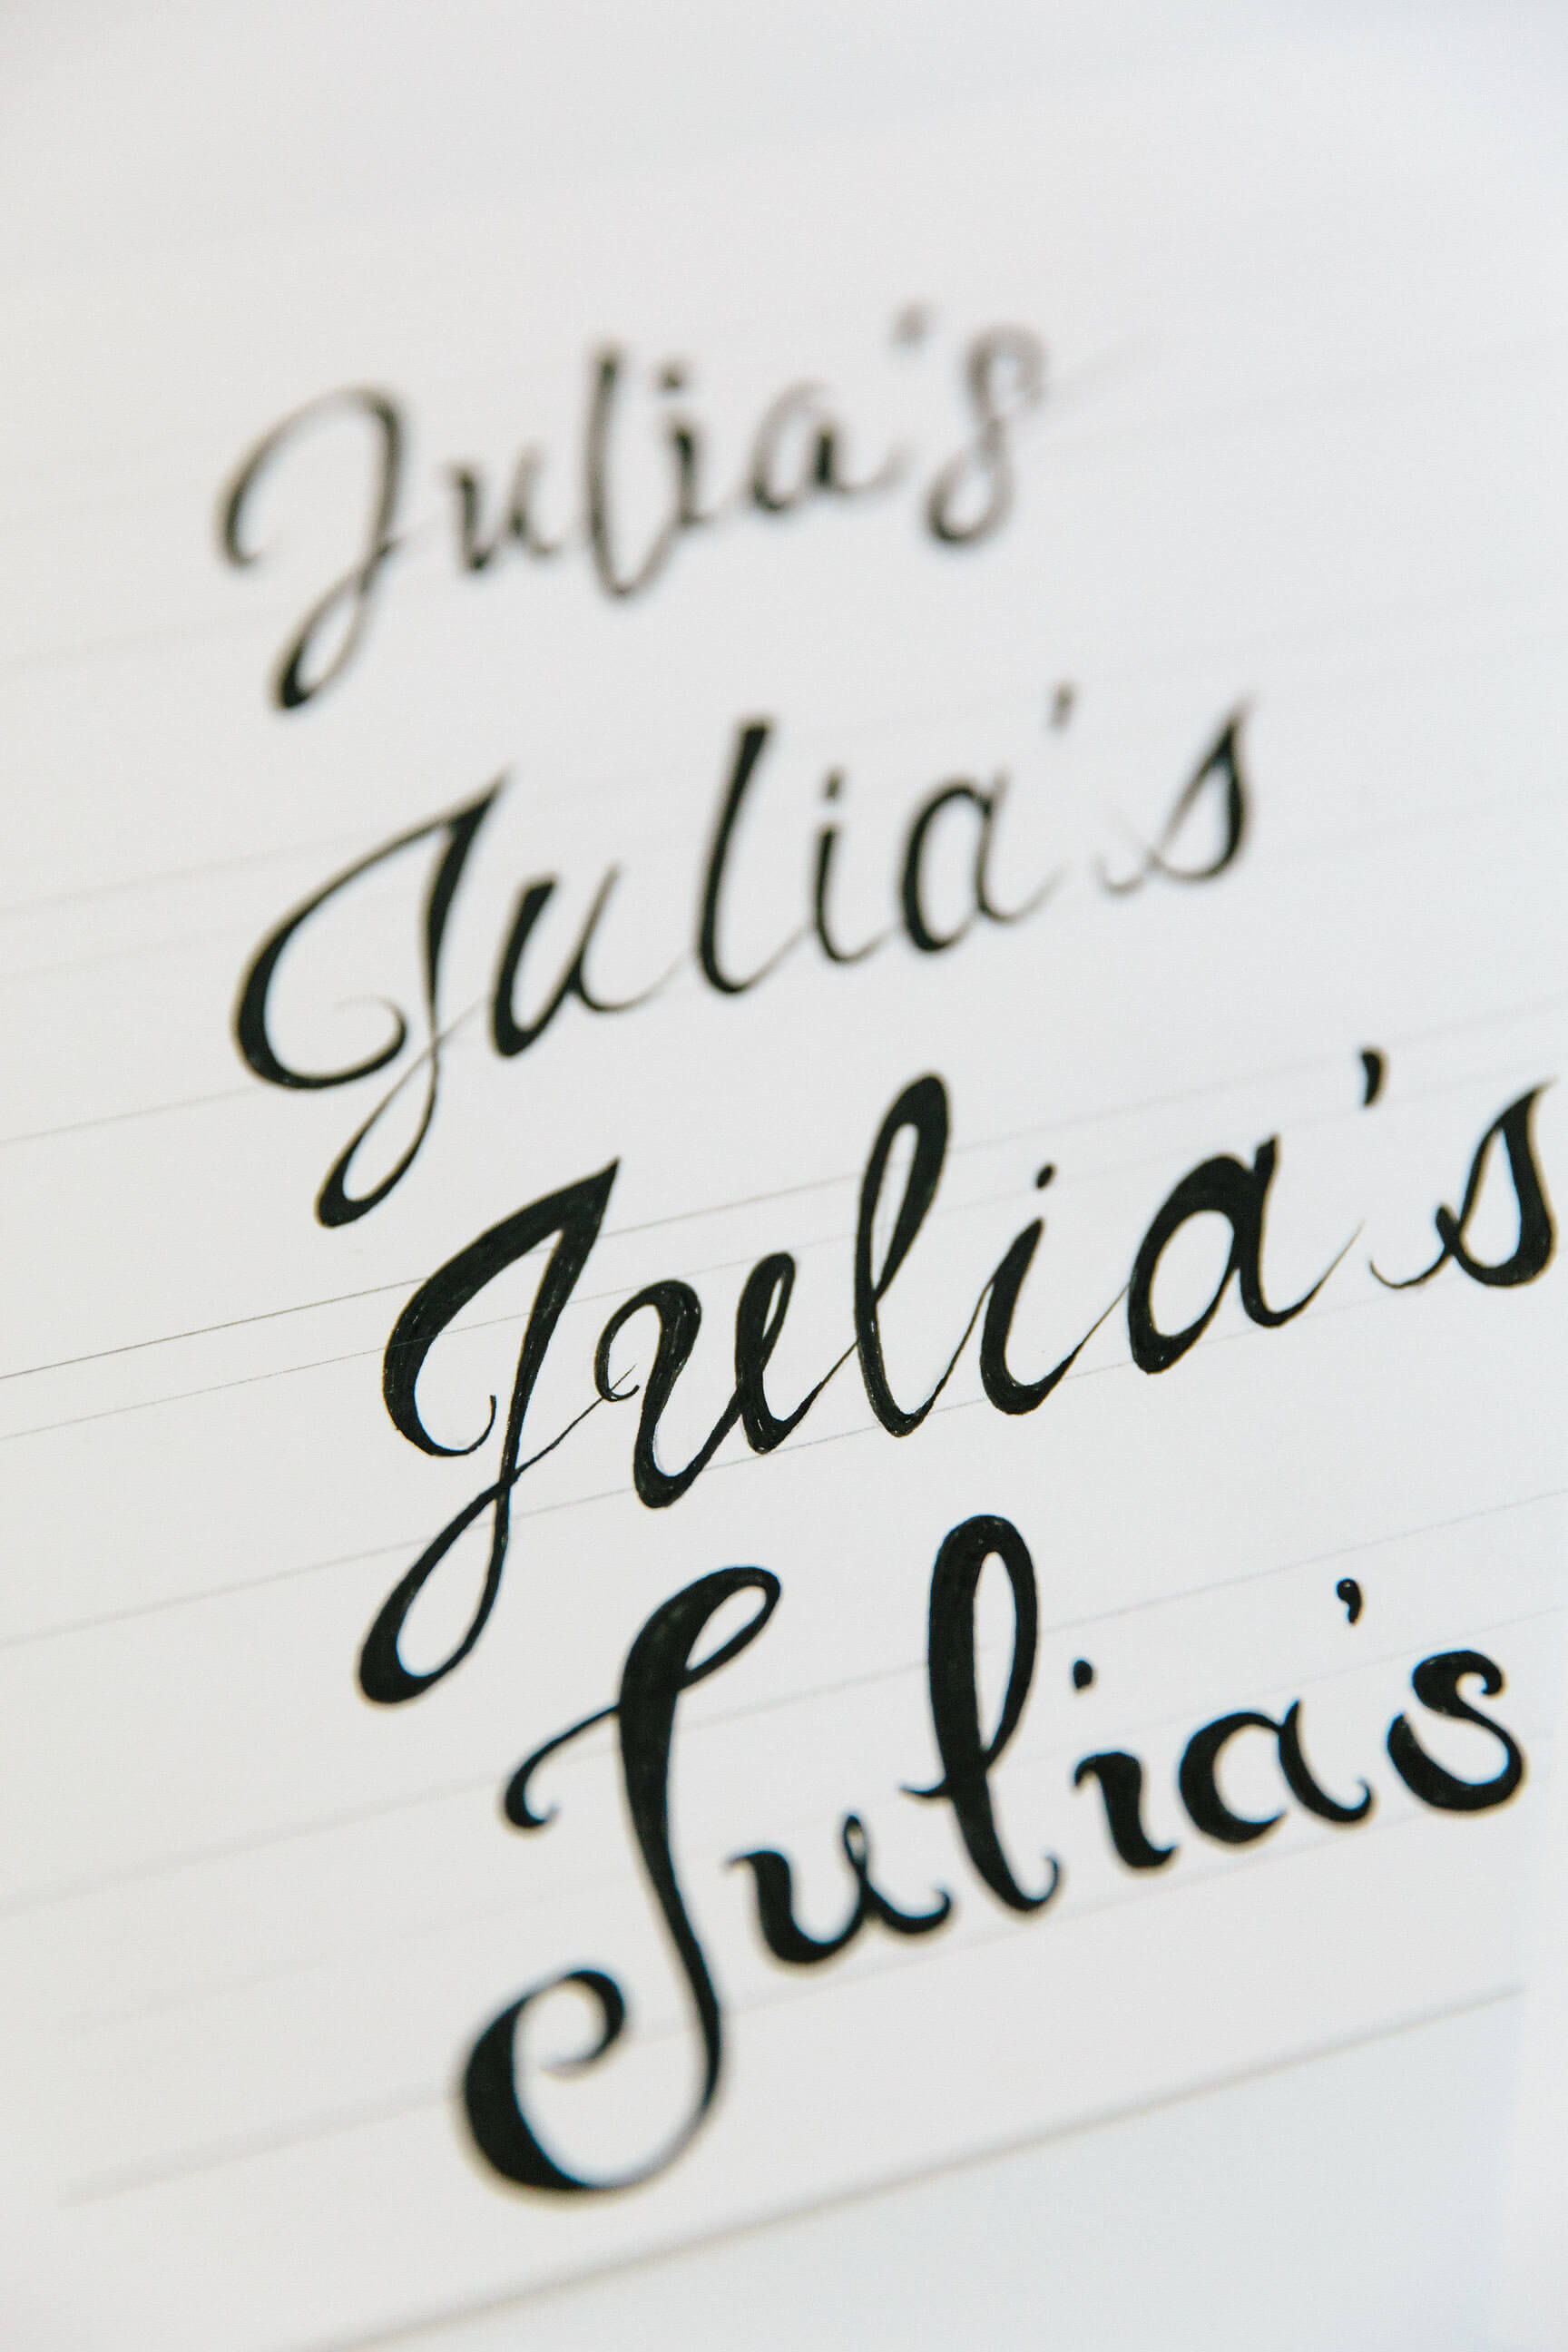 Julia's
Julia's
Julia's
Julia's